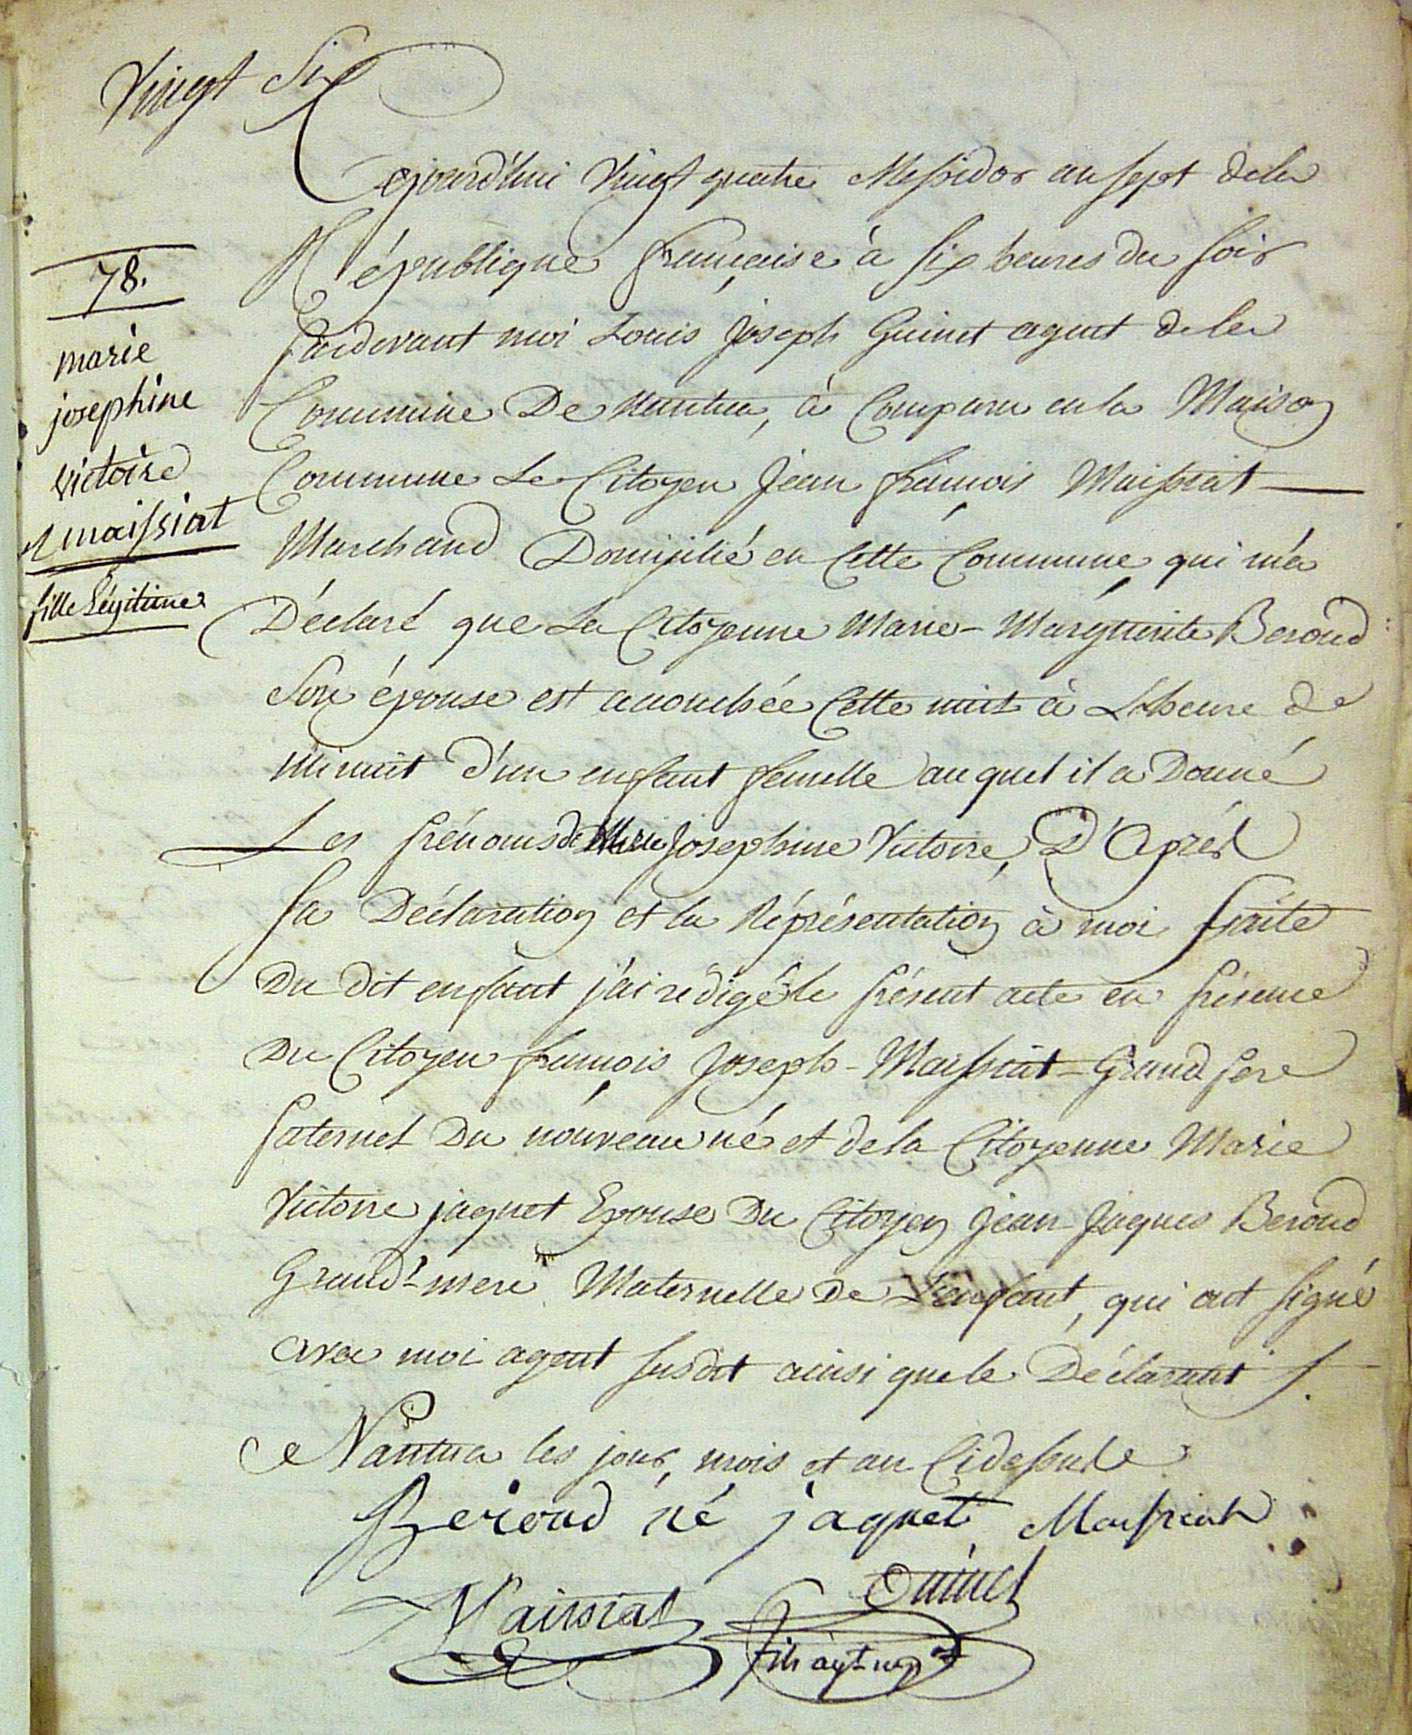 Vingt Six
Cejourd'hui Vingt quatre Messidor an sept de la
République française à six heures du soir
Pardevant moi Louis Joseph Guinet agent de la
Commune De Nantua, à Comparu en la Maison
Commune Le Citoyen Jean françois Maissiat
Marchand Domijilié en Cette Commune, qui m'a
Déclaré que La Citoyenne Marie-Marguerite Beroud
Son épouse est accouchée Cette nuit à L'heure de
minuit d'un enfant femelle auquel il a Donné
Les prénoms de Marie Josephine Victoire, D'Après
Sa Déclaration et la Réprésentation à moi faite
Du dit enfant j'ai rédigé le présent acte en présence
Du Citoyen françois Joseph-Maissiat-Grand pere
paternel Du nouveau né et de la Citoyenne Marie
Victoire jaquet Epouse Du Citoyen Jean Jaques Beroud
Grand'mere Maternelle De L'enfant, qui ont signé
avec moi agent susdit ainsi que le Déclarant
A Nantua les jour, mois et an Cidessus
Beroud né jaquet Maissiat
Maissiat Guinet
fils agt
78.
marie
josephine
victoire
maissiat
fille Légitime